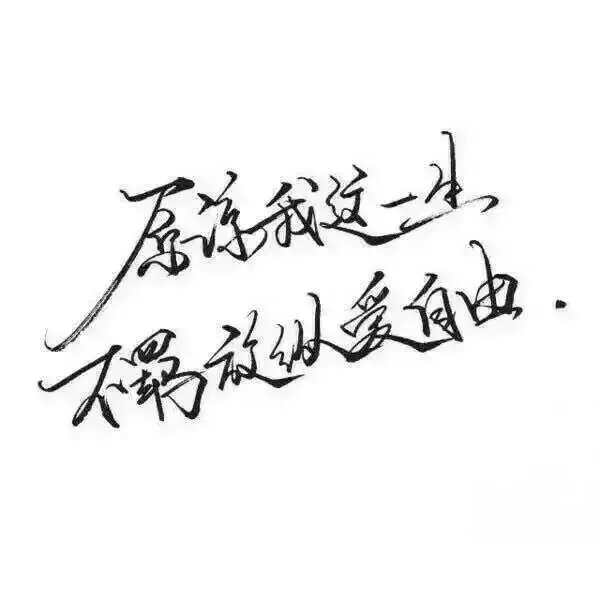 原谅我这一生
不羁放纵爱自由.